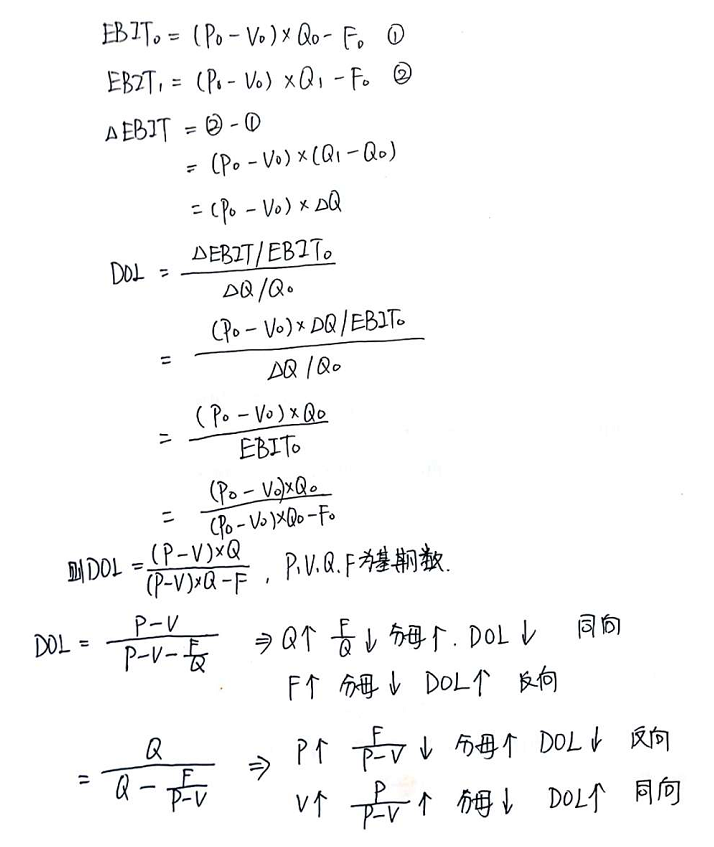 EBIT₀ = (P₀ - V₀) × Q₀ - F₀ ①
EBIT₁ = (P₀ - V₀) × Q₁ - F₀ ②
△EBIT = ② - ①
= (P₀ - V₀) × (Q₁ - Q₀)
= (P₀ - V₀) × △Q
DOL = (△EBIT/EBIT₀) / (△Q/Q₀)
= ((P₀ - V₀) × △Q/EBIT₀) / (△Q/Q₀)
= ((P₀ - V₀) × Q₀) / EBIT₀
= ((P₀ - V₀)×Q₀) / ((P₀ - V₀)×Q₀ - F₀)
则DOL = ((P-V)×Q) / ((P-V)×Q-F) , P,V,Q,F为基期数.
DOL = (P-V) / (P-V-F/Q) ⇒ Q↑ F/Q ↓ 分母↑. DOL↓ 同向
F↑ 分母↓ DOL↑ 反向
= Q / (Q - F/(P-V)) ⇒ P↑ F/(P-V) ↓ 分母↑ DOL↓ 反向
V↑ P/(P-V) ↑ 分母↓ DOL↑ 同向